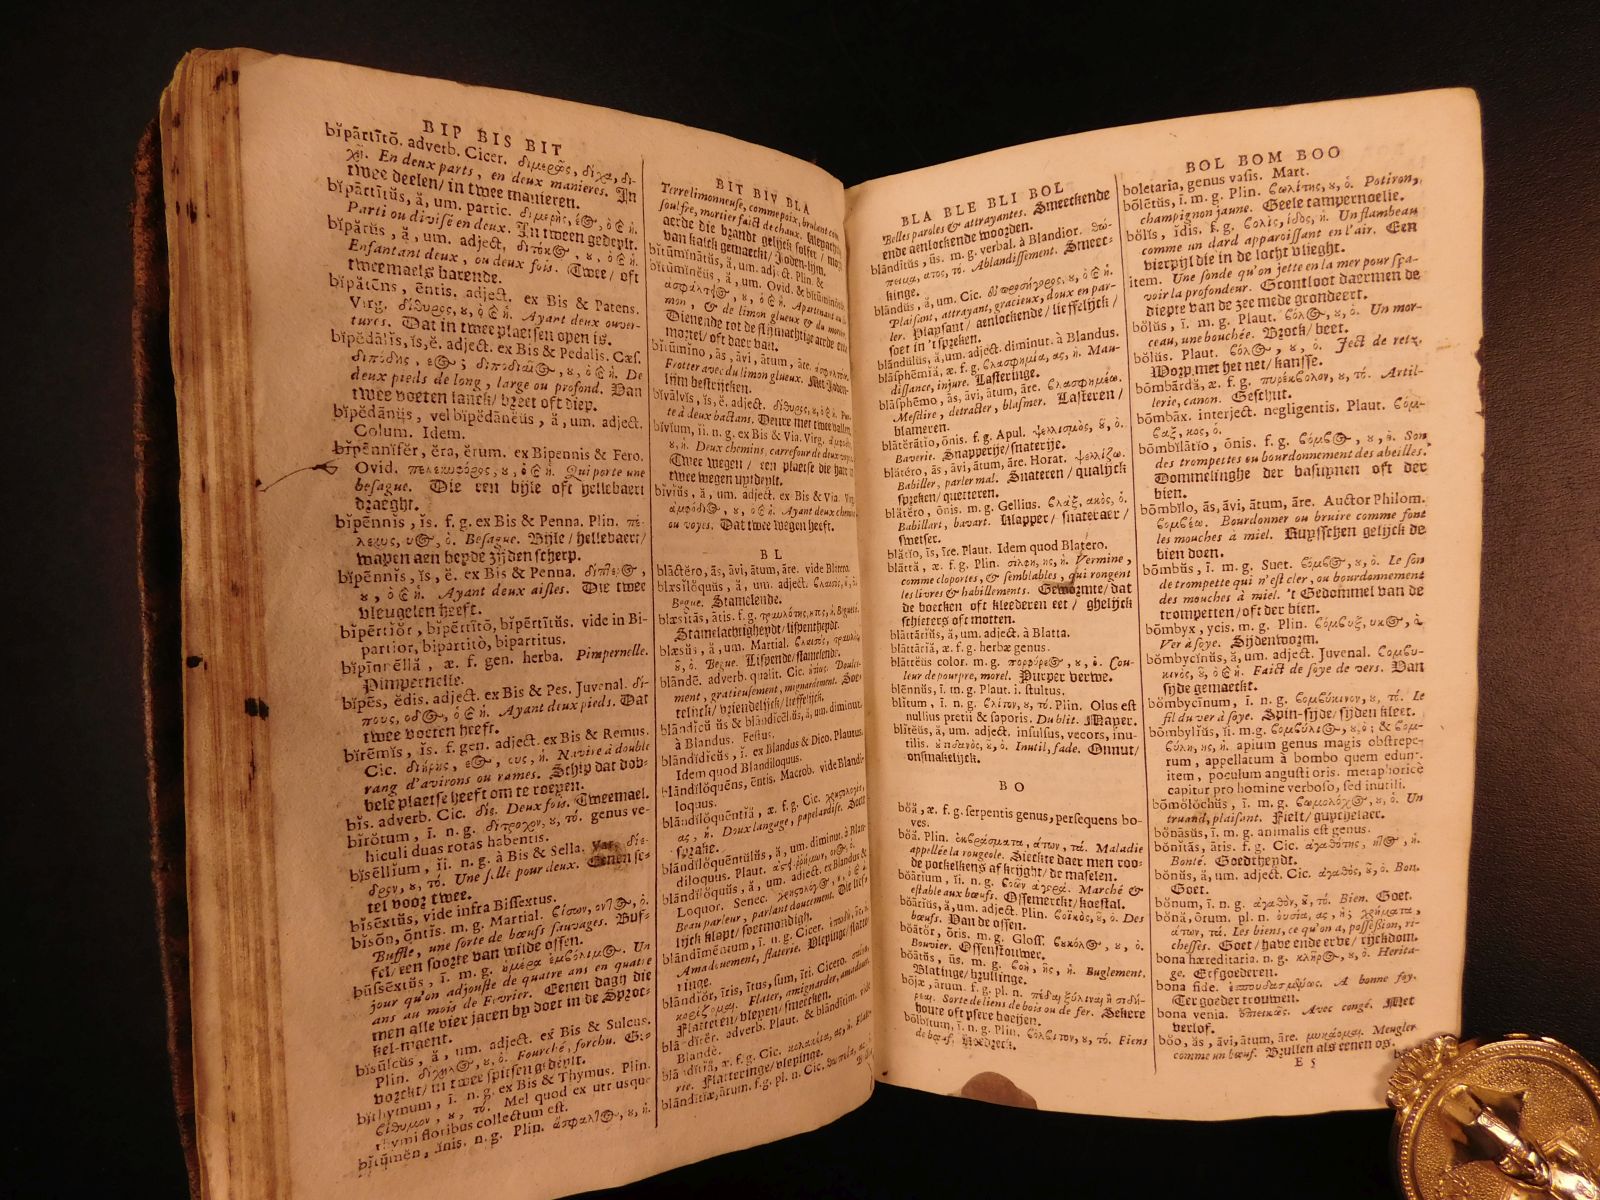 BIP BIS BIT
bĭpārtītō. adverb. Cicer. διμερῶς, δίχα, δι-
χῇ. En deux parts, en deux manieres. In
twee deelen/ in twee manieren.
bĭpārtītŭs, ă, um. partic.
Parti ou divisé en deux. In tween gedeylt.
bĭpărŭs, ă, um. adject.
Enfantant deux, ou deux fois. Twee/ oft
tweemaels barende.
bĭpătēns, ēntis. adject. ex Bis & Patens.
Virg. Ayant deux ouver-
tures. Dat in twee plaetsen open is.
bĭpĕdālis, ĭs, ĕ. adject. ex Bis & Pedalis. Cæs.
De
deux pieds de long, large ou profond. Van
twee voeten lanck/ breet oft diep.
bĭpĕdānŭs, vel bĭpĕdānĕŭs, ă, um. adject.
Colum. Idem.
bĭpēnnĭfĕr, ĕra, ĕrum. ex Bipennis & Fero.
Ovid. Qui porte une
besague. Die een bijle oft hellebaert
draeght.
bĭpēnnĭs, ĭs. f. g. ex Bis & Penna. Plin. πέ-
λεκυς, Besague. Bijle/ hellebaert/
wapen aen beyde zijden scherp.
bĭpēnnĭs, ĭs, ĕ. ex Bis & Penna.
Ayant deux aisles. Die twee
vleugelen heeft.
bĭpērtĭŏr, bĭpērtītō, bĭpērtītŭs. vide in Bi-
partior, bipartitò, bipartitus.
f. gen. herba. Pimpernelle.
Pimpernelle.
bĭpēs, ĕdis. adject. ex Bis & Pes. Juvenal. δί-
πους, Ayant deux pieds. Dat
twee voeten heeft.
bĭrēmĭs, ĭs. f. gen. adject. ex Bis & Remus.
Cic. Navire à double
rang d'avirons ou rames. Schip dat dob-
bele plaetse heeft om te roeyen.
bĭs. adverb. Cic. δίς. Deux fois. Tweemael.
bĭrŏtum, ī. n. g. genus ve-
hiculi duas rotas habentis.
bĭsēllium, ĭi. n. g. à Bis & Sella. Var.
Une selle pour deux. Eenen se-
tel voor twee.
bĭsēxtŭs, vide infra Bissextus.
bĭsōn, ōntis. m. g. Martial.
Buffle, une sorte de bœufs sauvages. Buf-
fel/ een soorte van wilde ossen.
m. g. Un
jour qu'on adjouste de quatre ans en quatre
ans au mois de Fevrier. Eenen dagh die
men alle vier jaren by doet in de Sproc-
kel-maent.
bĭsūlcŭs, ă, um. adject. ex Bis & Sulcus.
Plin. Fourché, forchu. Ge-
vorckt/ in twee spitsen gedeylt.
bĭthymum, ī. n. g. ex Bis & Thymus. Plin.
Mel quod ex utriusque
thymi floribus collectum est.
bĭtūmĕn, ĭnis. n. g. Plin.
BIT BIV BLA
Terre limonneuse, comme poix, brulant com
soulfre, mortier faict de chaux.
aerde die brandt gelijck solfer/
van kalck gemaeckt/ Joden-lijm.
bĭtūmĭnātŭs, ă, um. adject. Plin. &
bĭtūmĭnĕŭs, ă, um. Ovid. &
mon, & de limon glueux & du
Dienende tot de slijmachtige aerde
mortel/ oft daer van.
bĭtūmĭno, ās, āvi, ātum, āre.
Frotter avec du limon glueux. Met Joden-
lijm bestrijcken.
bĭvālvĭs, ĭs, ĕ. adject.
te à deux batans. Deure met twee vallen.
bĭvium, ĭi. n. g. ex Bis & Via. Virg.
Deux chemins, carrefour de deux voyes.
Twee wegen/ een plaetse die haer in
twee wegen uytdeylt.
bĭvĭŭs, ă, um. adject. ex Bis & Via. Virg.
Ayant deux chemins
ou voyes. Dat twee wegen heeft.
BL
blāctĕro, ās, āvi, ātum, āre. vide Blatero.
blæsĭlŏquŭs, ă, um. adject.
Begue. Stamelende.
blæsĭtās, ātis. f. g.
Stamelachtigheydt/ lispentheydt.
blæsŭs, ă, um. Martial.
Begue. Lispende/ stamelende.
blāndē. adverb. qualit. Cic. Doulce-
ment, gratieusement, mignardement. Soe-
telijck/ vriendelijck/ lieffelijck.
& blāndĭcĕllŭs, ă, um. diminut.
à Blandus. Festus.
blāndĭdĭcŭs, ī. ex Blandus & Dico. Plautus.
Idem quod Blandiloquus.
blāndĭlŏquēns, ēntis. Macrob. vide Blandi-
loquus.
blāndĭlŏquēntiă, æ. f. g. Cic.
Doux langage, papelardise. Soete
sprake.
blāndĭlŏquēntŭlŭs, ă, um. diminut. à Blan-
diloquus. Plaut.
blāndĭlŏquŭs, ă, um. adject. ex Blandus &
Loquor. Senec.
Beau parleur, parlant doucement. Die lief-
lijck klapt/ soetmondigh.
blāndīmēntum, ī. n. g. Cicer.
Amadouement, flaterie. Vleyinge/ flatte-
ringe.
blāndĭŏr, īris, ītus, sum, īri. Cicero.
Flater, amignarder, amadouer.
Flatteren/ vleyen/ smeecken.
adverb. Plaut. & blāndītim. vide
Blandè.
æ. f. g. Cic. Flate-
rie. Flatteringe/ vleyinge.
blāndĭtĭæ, ārum. f. g. pl. n. Cic.
BLA BLE BLI BOL
Belles paroles & attrayantes. Smeeckende
ende aenlockende woorden.
blāndītŭs, ūs. m. g. verbal. à Blandior.
Ablandissement. Smeec-
kinge.
blāndŭs, ă, um. Cic.
Plaisant, attrayant, gracieux, doux en par-
ler. Playsant/ aenlockende/ lieffelijck/
soet in 't spreken.
blāndŭlŭs, ă, um. adject. diminut. à Blandus.
blāsphēmĭă, æ. f. g. βλασφημία, ας, ἡ. Mau-
dissance, injure. Lasteringe.
blāsphēmo, ās, āvi, ātum, āre. βλασφημέω.
Mesdire, detracter, blasmer. Lasteren/
blameren.
blătĕrātĭo, ōnis. f. g. Apul. ψελλισμός, οῦ, ὁ.
Baverie. Snapperije/ snaterije.
blătĕro, ās, āvi, ātum, āre. Horat. ψελλίζω.
Babiller, parler mal. Snateren/ qualijck
spreken/ quetteren.
blătĕro, ōnis. m. g. Gellius. βλὰξ, ακός, ὁ.
Babillart, bavart. Klapper/ snateraer/
swetser.
blātĭo, ĭs, īre. Plaut. Idem quod Blatero.
blāttă, æ. f. g. Plin. σίλφη, ης, ἡ. Vermine,
comme cloportes, & semblables, qui rongent
les livres & habillements. Gewormte/ dat
de boecken oft kleederen eet/ ghelijck
schieters oft motten.
blāttārĭŭs, ă, um. adject. à Blatta.
blāttārĭă, æ. f. g. herbæ genus.
blāttĕŭs color. m. g. Cou-
leur de pourpre, morel. Purper verwe.
blēnnŭs, ī. m. g. Plaut. i. stultus.
blĭtum, ī. n. g. Plin. Olus est
nullius pretii & saporis. Du blit. Mayer.
blĭtĕŭs, ă, um. adject. insulsus, vecors, inu-
tilis. Inutil, fade. Onnut/
onsmakelijck.
BO
bŏă, æ. f. g. serpentis genus, persequens bo-
ves.
bŏă. Plin. Maladie
appellée la rougeole. Sieckte daer men roo-
de pockelkens af krijght/ de maselen.
bŏārĭum, ĭi. n. g. βοῶν ἀγορά. Marché &
estable aux bœufs. Ossemerckt/ koestal.
bŏārĭŭs, ă, um. adject. Plin. βοϊκὸς, Des
bœufs. Van de ossen.
bŏātŏr, ōris. m. g. Gloss. Buglement.
Bouvier. Ossenstouwer.
bŏātŭs, ūs. m. g. βοή, ῆς, ἡ.
Blatinge/ brullinge.
bōjæ, ārum. f. g. pl. n.
Sorte de liens de bois ou de fer. Sekere
houte oft ysere boeijen.
bōlbĭtum, ī. n. g. Plin. Fiens
de bœuf.
BOL BOM BOO
boletaria, genus vasis. Mart.
bōlētŭs, ī. m. g. Plin. βωλίτης, Potiron,
champignon jaune. Geele campernoelie.
bŏlĭs, ĭdis. f. g. βολίς, ίδος, ἡ. Un flambeau
comme un dard apparoissant en l'air. Een
vierpijl die in de locht vlieght.
item. Une sonde qu'on jette en la mer pour sça-
voir la profondeur. Grontloot daermen de
diepte van de zee mede grondeert.
bōlŭs, ī. m. g. Plaut. Un mor-
ceau, une bouchée. Brock/ beet.
bŏlŭs. Plaut. Ject de retz.
Worp met het net/ kansse.
bōmbărdă, æ. f. g. Artil-
lerie, canon. Geschut.
bōmbāx. interject. negligentis. Plaut. βόμ-
βαξ,
bōmbĭlātĭo, ōnis. f. g. Son
des trompettes ou bourdonnement des abeilles.
Dommelinghe der basuynen oft der
bien.
bōmbĭlo, ās, āvi, ātum, āre. Auctor Philom.
βομβέω. Bourdonner ou bruire comme font
les mouches à miel. Ruysschen gelijck de
bien doen.
bōmbŭs, ī. m. g. Suet. Le son
de trompette qui n'est cler, ou bourdonnement
des mouches à miel. 't Gedommel van de
trompetten/ oft der bien.
bōmbyx, ycis. m. g. Plin. βόμβυξ,
Ver à soye. Sijdenworm.
bōmbycĭnŭs, ă, um. adject. Juvenal. βομβύ-
κινος, Faict de soye de vers. Van
sijde gemaeckt.
bōmbycĭnum, ī. n. g. Le
fil du ver à soye. Spin-sijde/ sijden kleet.
bōmbylĭŭs, ī. m. g. & βομ-
βύλη, ης, ἡ. apium genus magis obstrepe-
rum, appellatum à bombo quem edunt.
item, poculum angusti oris. metaphoricè
capitur pro homine verboso, sed inutili.
bōmŏlŏchŭs, ī. m. g. Un
truand, plaisant. Fielt/ guychelaer.
bōnāsŭs, ī. m. g. animalis est genus.
bŏnĭtās, ātis. f. g. Cic. ἀγαθότης,
Bonté. Goedtheydt.
bŏnŭs, ă, um. adject. Cic. ἀγαθὸς, Bon.
Goet.
bŏnum, ī. n. g. Bien. Goet.
bŏnă, ōrum. pl. n. οὐσία, ας, ἡ; χρήματα,
άτων, τά. Les biens, ce qu'on a, possession, ri-
chesses. Goet/ have ende erve/ rijckdom.
bona hæreditaria. n. g. Herita-
ge. Erfgoederen.
bona fide. A bonne foy.
Ter goeder trouwen.
bona venia. Avec congé. Met
verlof.
bŏo, ās, āvi, ātum, āre. Meugler
comme un bœuf. Brullen als eenen os.
E 5